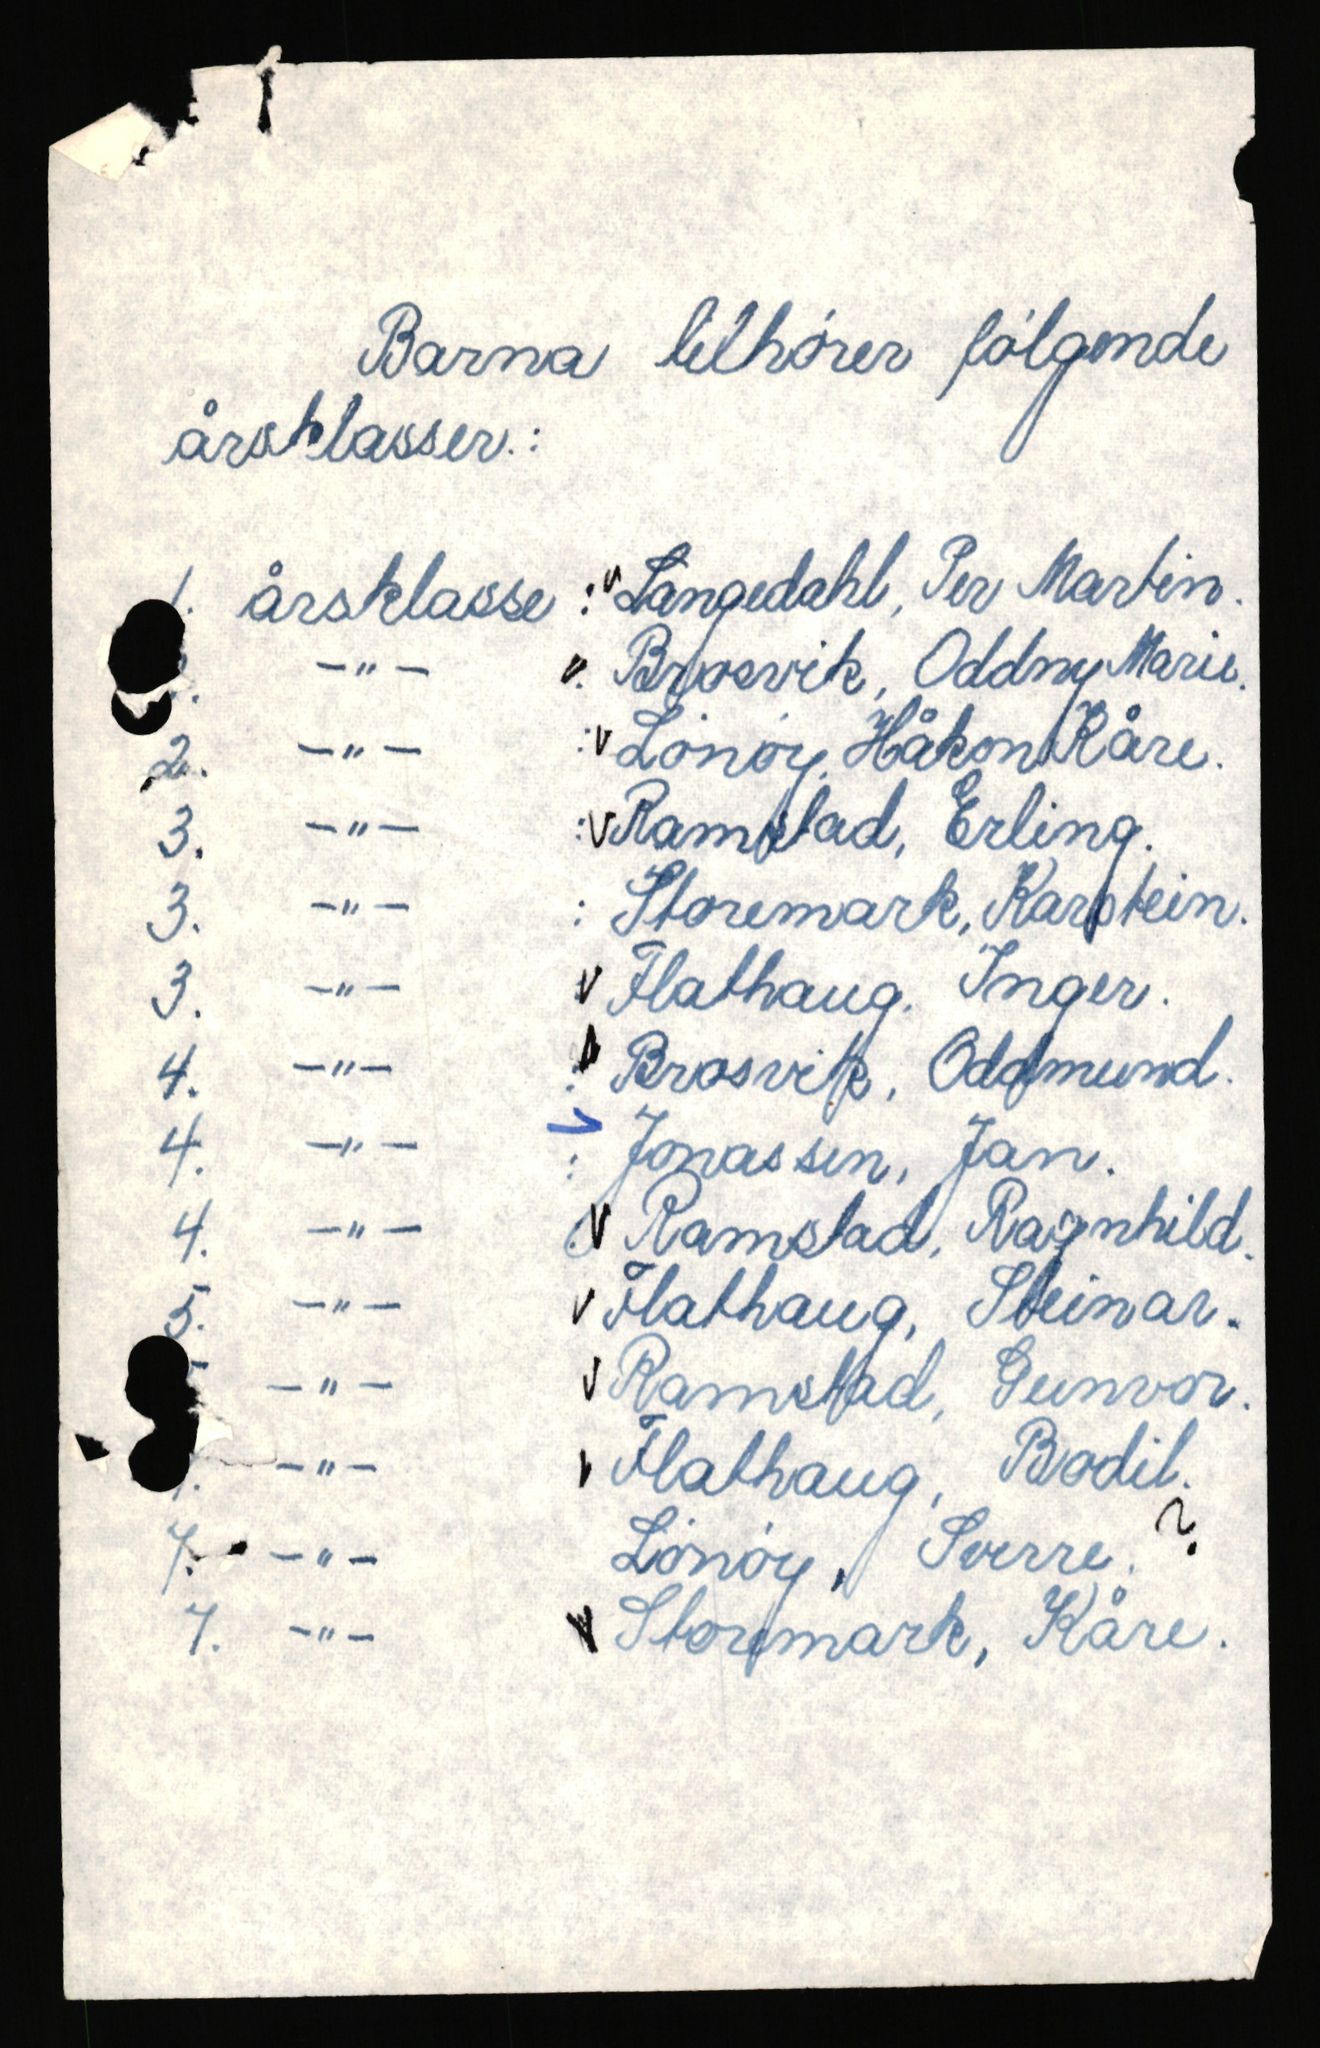 Barna tilhører følgende
årsklasser.:
1. årsklasse : Langedahl, Per Martin.
-"- : Brosvik, Oddny Marie.
2. -"- : Lönöy, Håkon Kåre.
3. -"- : Ramstad, Erling.
3. -"- : Storemark, Karstein.
3. -"- : Flathaug. Inger.
4. -"- : Brosvik, Oddmund.
4. -"- : Jonassen, Jan.
4. -"- : Ramstad, Ragnhild.
5. -"- Flathaug, Steinar.
5 -"- Ramstad, Gunvor.
-"- Flathaug, Bodil.
7. -"- Lönöy, Sverre. ?
7. -"- Storemark, Kåre.